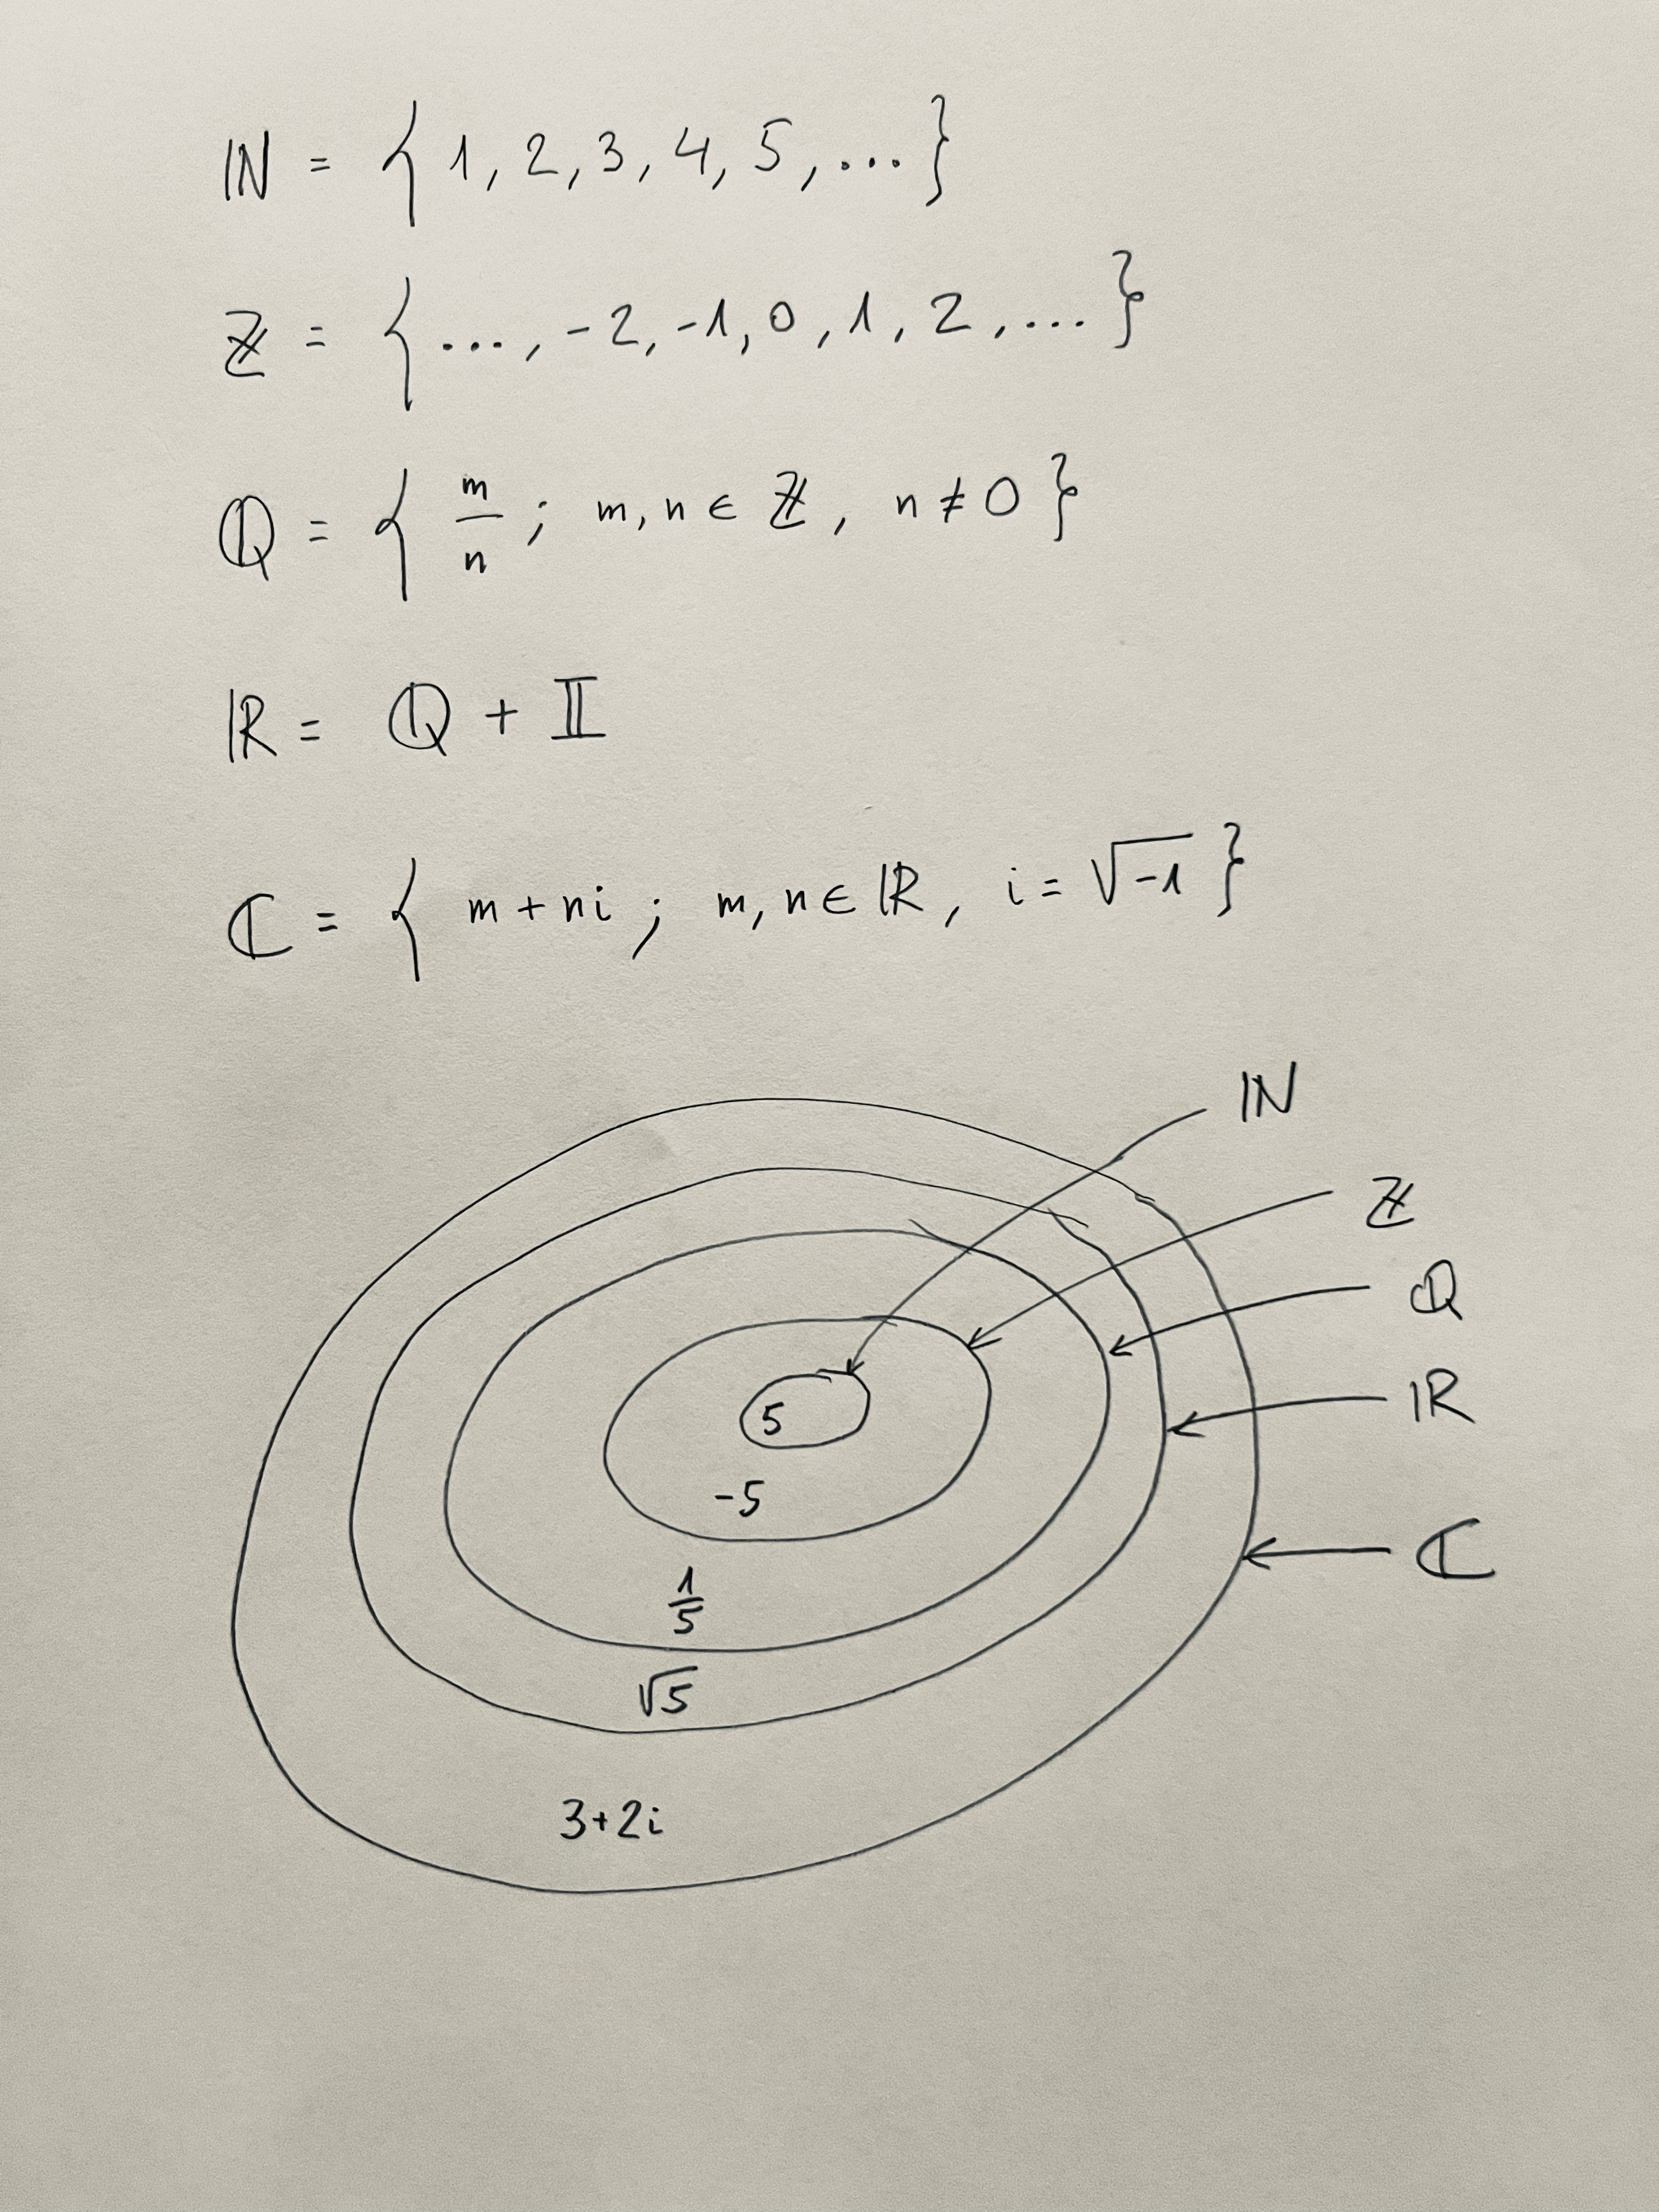 ℕ = { 1, 2, 3, 4, 5, ... }
ℤ = { ..., -2, -1, 0, 1, 2, ... }
ℚ = { m/n ; m, n ∈ ℤ, n ≠ 0 }
ℝ = ℚ + 𝕀
ℂ = { m + ni ; m, n ∈ ℝ, i = √-1 }
ℕ
ℤ
ℚ
ℝ
ℂ
5
-5
1/5
√5
3+2i